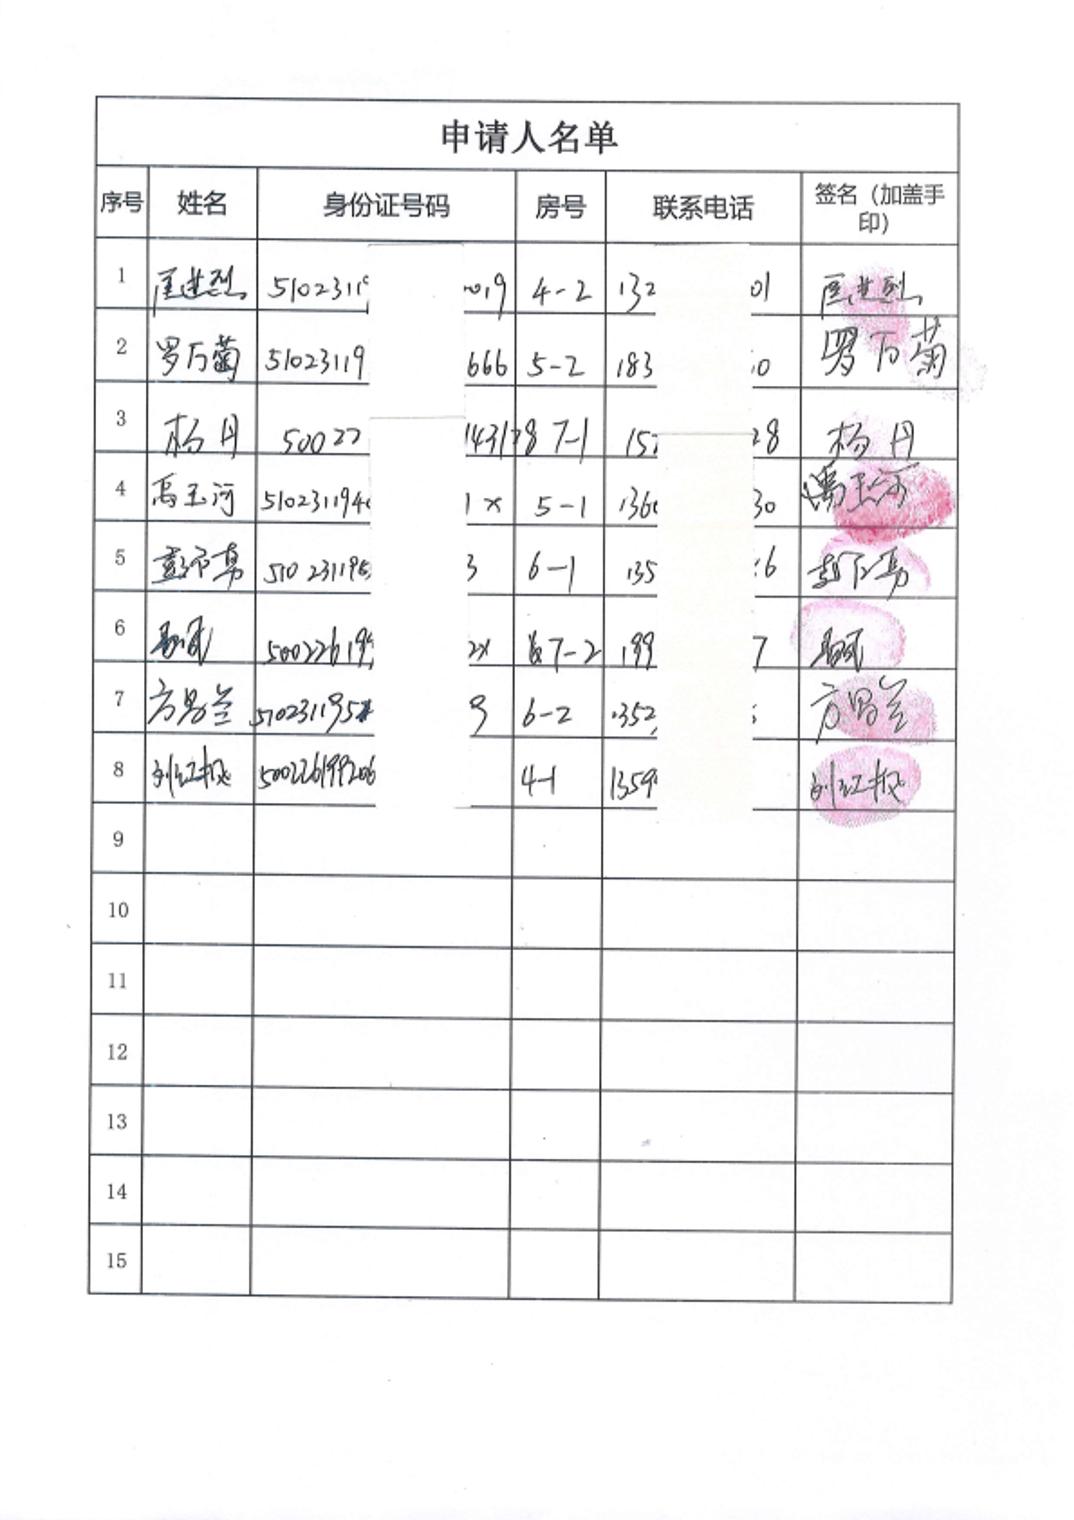 申请人名单
序号 姓名 身份证号码 房号 联系电话 签名（加盖手印）
1 匡进烈 5102311 019 4-2 132 01 匡进烈
2 罗万菊 51023119 666 5-2 183 0 罗万菊
3 杨丹 50022 1431 7-1 15 28 杨丹
4 禹玉河 510231194 1x 5-1 136 30 禹玉河
5 510231195 3 6-1 135 6
6 50022619 2x 7-2 199 7
7 方昌兰 510231195 9 6-2 1352 方昌兰
8 刘红枫 500226199206 4-1 1359 刘红枫
9
10
11
12
13
14
15